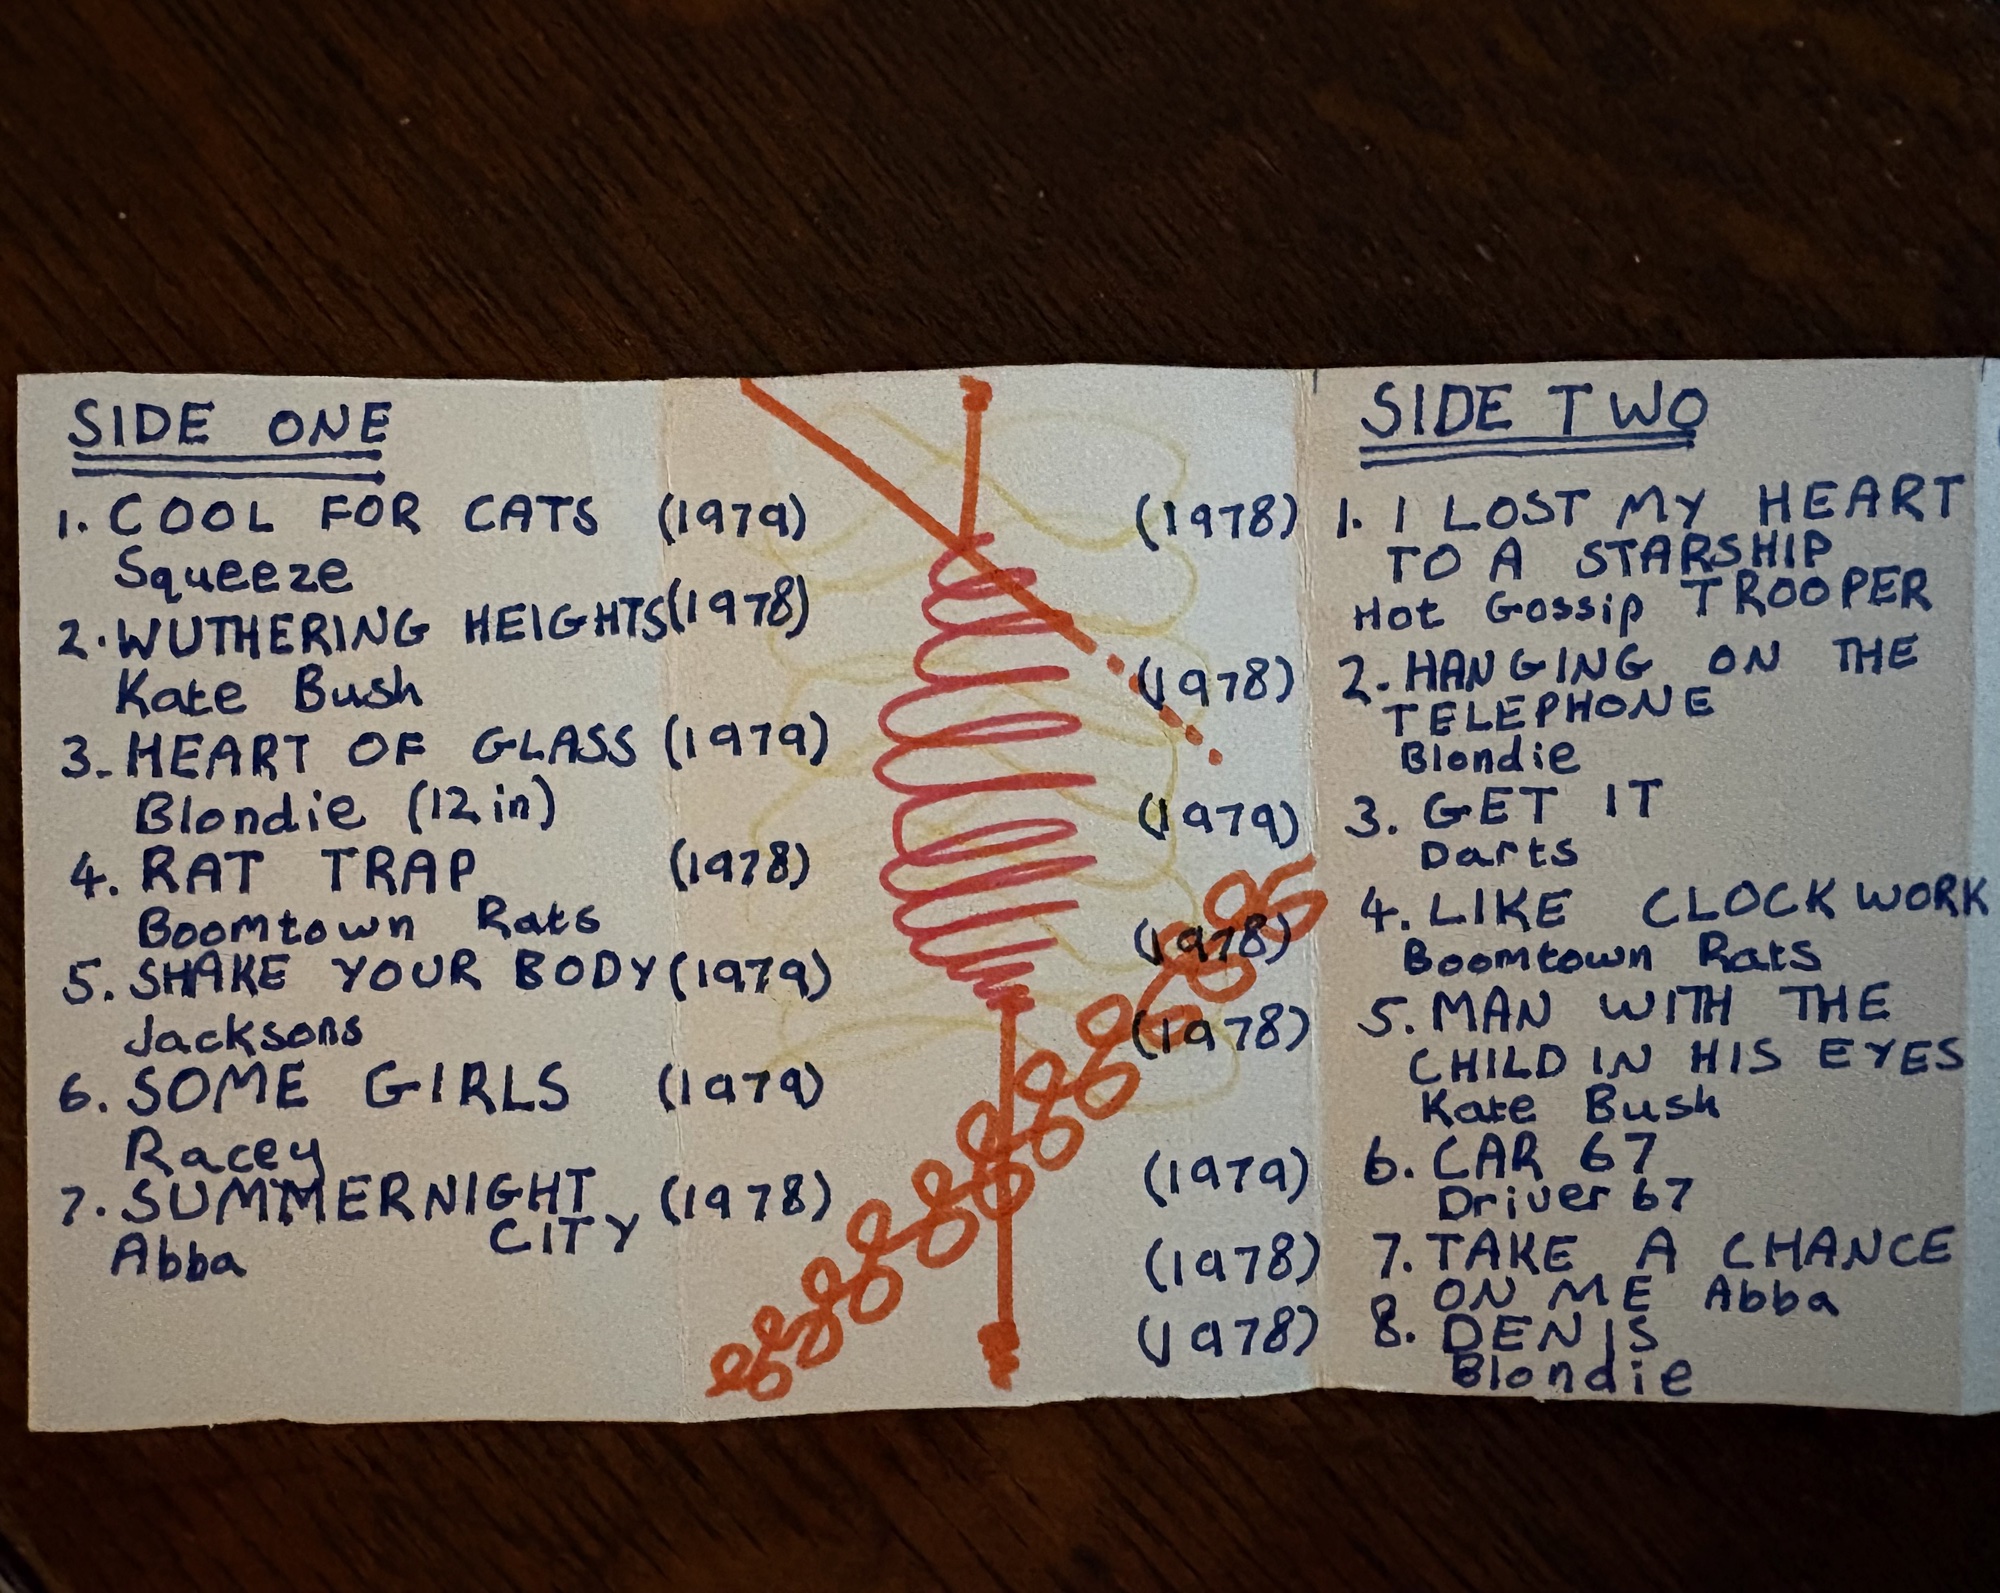 SIDE ONE
1. COOL FOR CATS (1979)
Squeeze
2. WUTHERING HEIGHTS (1978)
Kate Bush
3. HEART OF GLASS (1979)
Blondie (12 in)
4. RAT TRAP (1978)
Boomtown Rats
5. SHAKE YOUR BODY (1979)
Jacksons
6. SOME GIRLS (1979)
Racey
7. SUMMERNIGHT (1978)
CITY
Abba
SIDE TWO
(1978) 1. I LOST MY HEART
TO A STARSHIP
Hot Gossip TROOPER
(1978) 2. HANGING ON THE
TELEPHONE
Blondie
(1979) 3. GET IT
Darts
(1978) 4. LIKE CLOCKWORK
Boomtown Rats
(1978) 5. MAN WITH THE
CHILD IN HIS EYES
Kate Bush
(1979) 6. CAR 67
Driver 67
(1978) 7. TAKE A CHANCE
ON ME Abba
(1978) 8. DENIS
Blondie